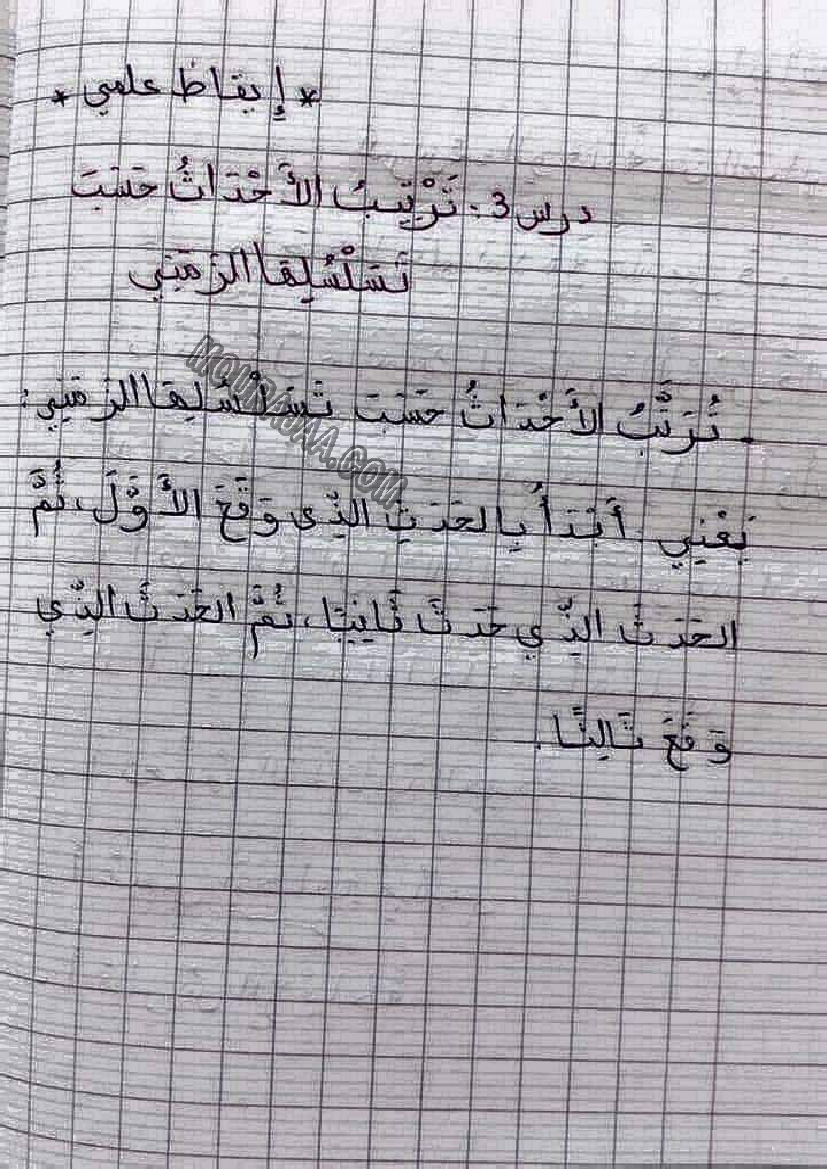 * إيقاظ علمي *
درس 3: تَرْتِيبُ الأَحْدَاثُ حَسَبَ
تَسَلْسُلِهَا الزَّمَنِي
- تُرَتَّبُ الأَحْدَاثُ حَسَبَ تَسَلْسُلِهَا الزَّمَنِي:
MOURAJAA.COM
يَعْنِي أَبْدَأُ بِالحَدَثِ الذِّي وَقَعَ الأَوَّلَ، ثُمَّ
الحَدَثَ الذِّي حَدَثَ ثَانِيًا، ثُمَّ الحَدَثَ الذِّي
وَقَعَ ثَالِثًا.